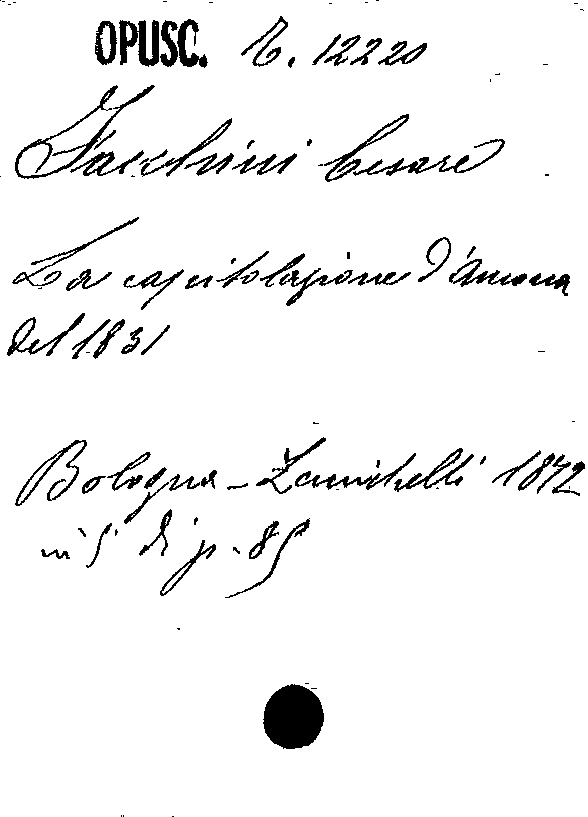 OPUSC. 12220
Facchini Cesare
La capitolazione d'Ancona
del 1831
Bologna - Zanichelli 1872
di p.